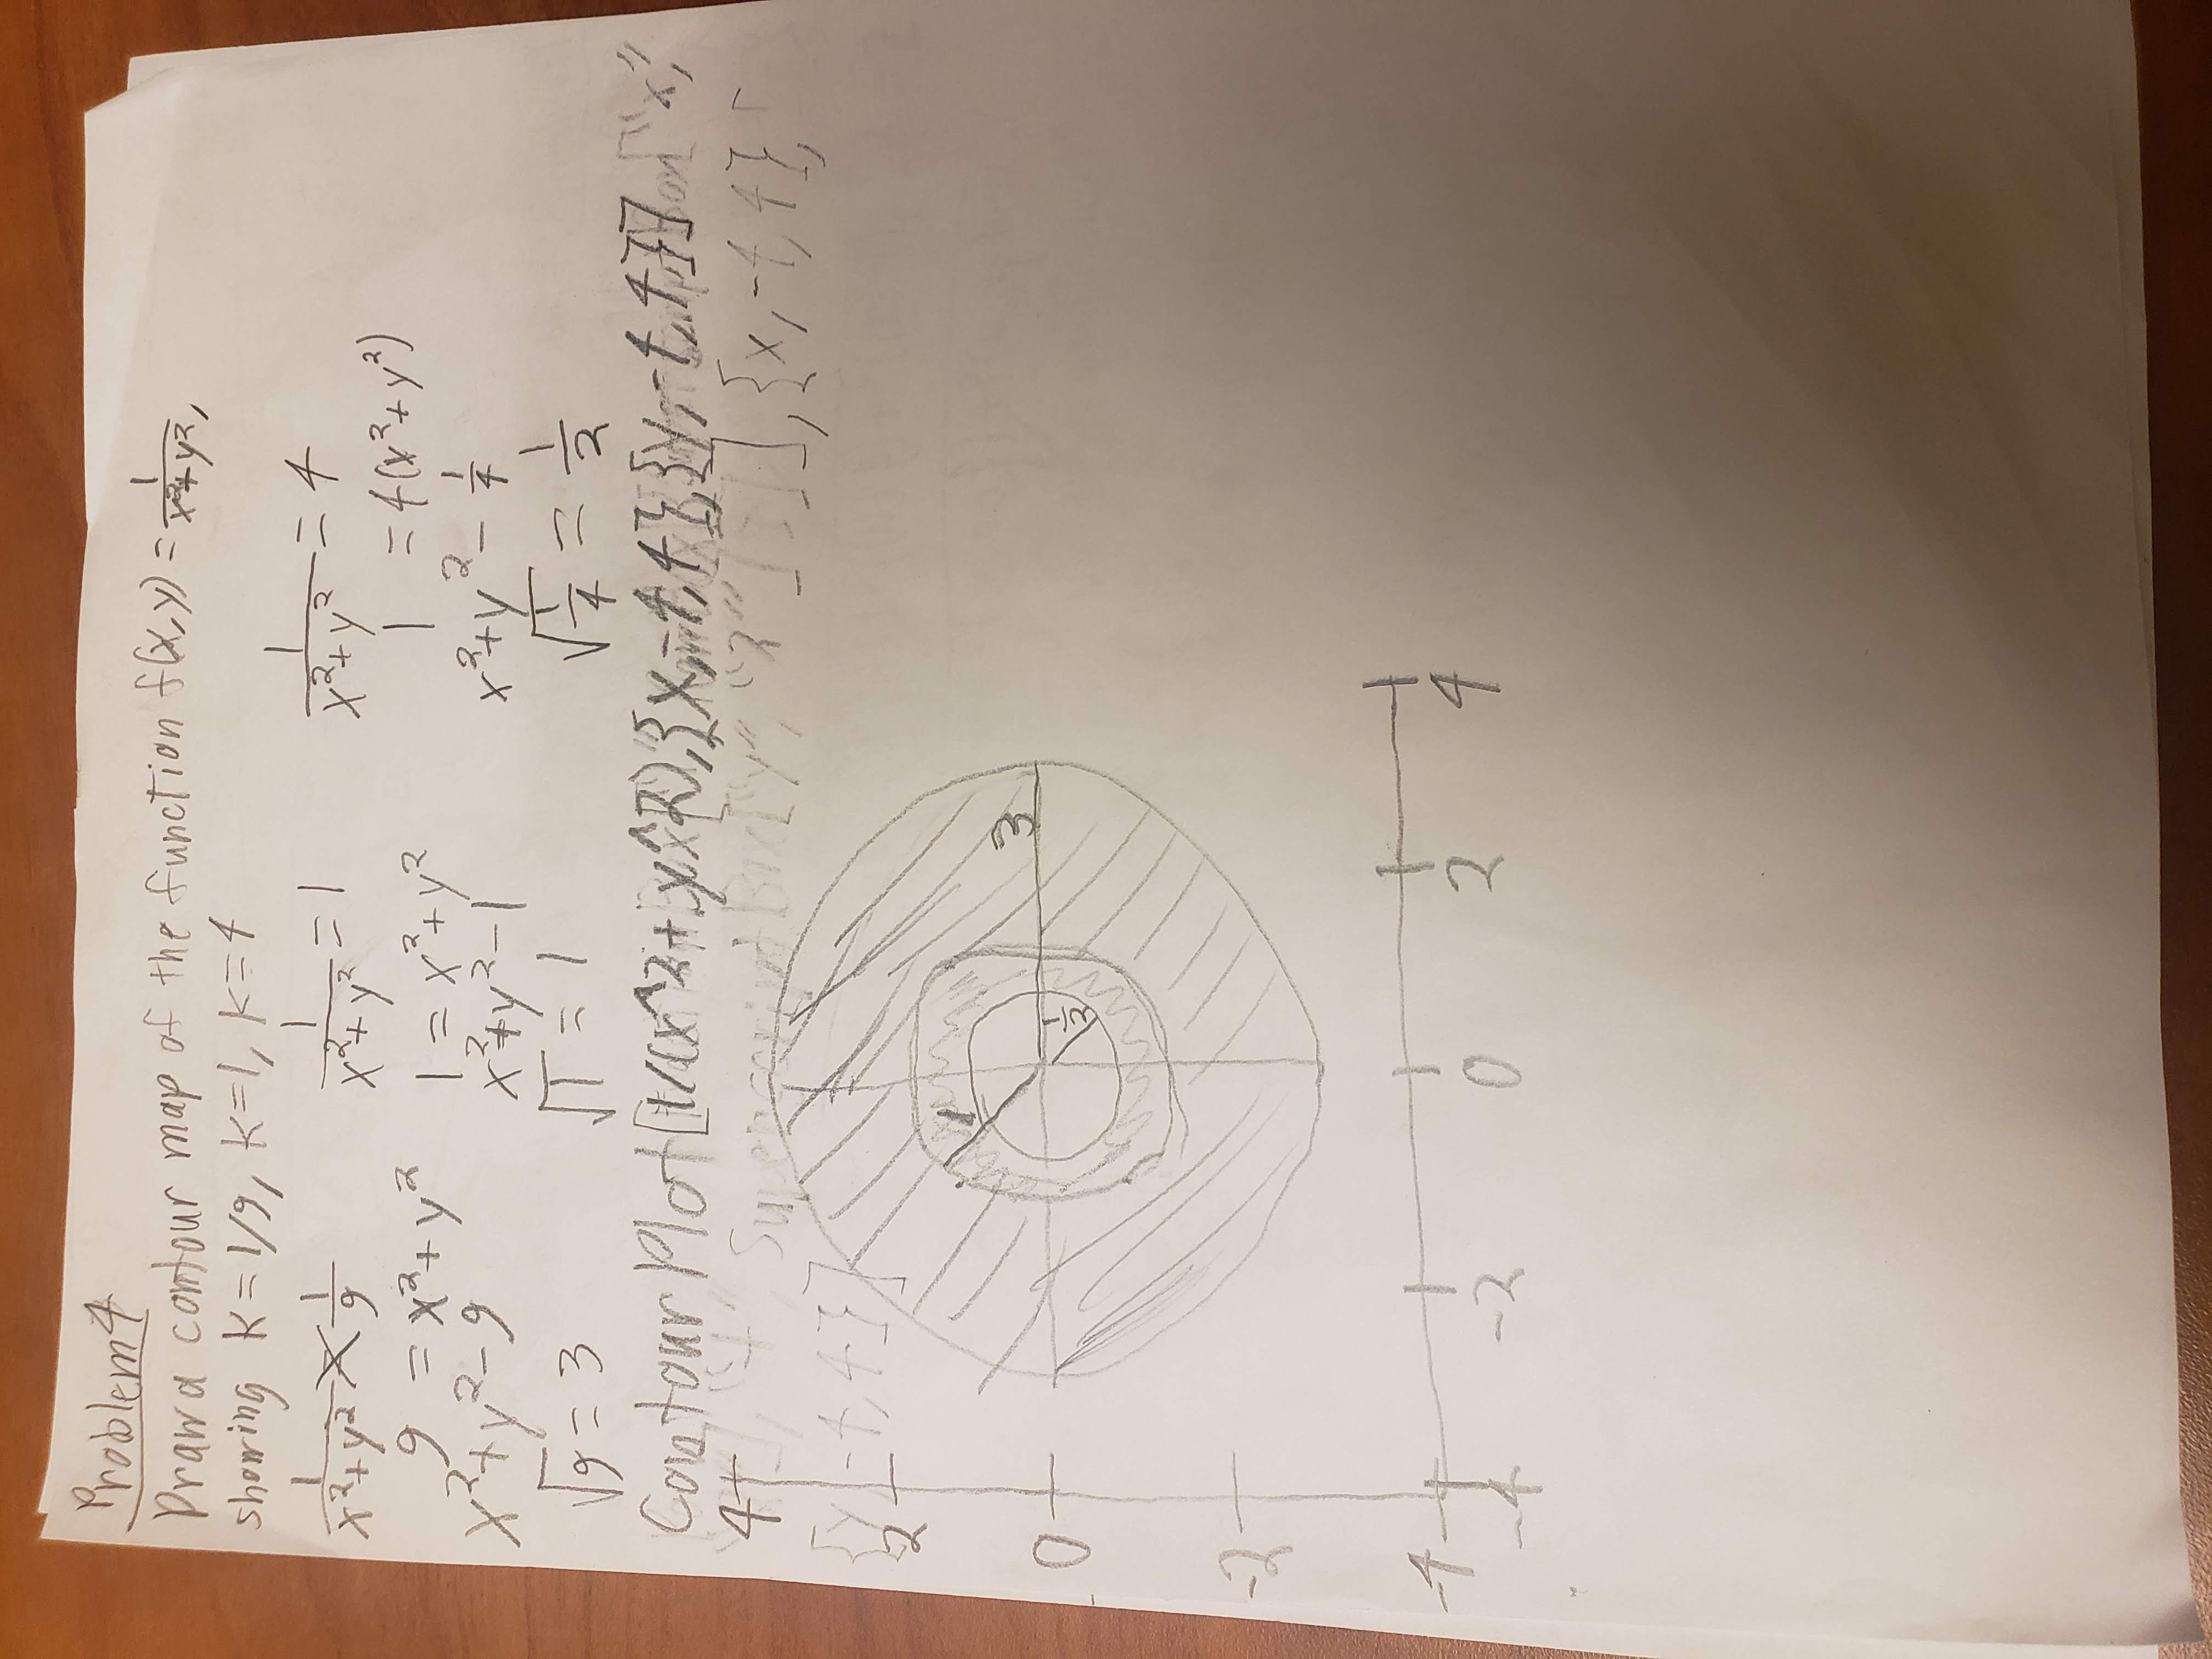 Problem 4
Draw a contour map of the function f(x,y) = 1/(x²+y²),
showing K = 1/9, K=1, K=4
1/(x²+y²) 1/9    1/(x²+y²) = 1    1/(x²+y²) = 4
9 = x²+y²    1 = x²+y²    1 = 4(x²+y²)
x²+y²-9    x²+y²-1    x²+y²-1/4
√9 = 3    √1 = 1    √(1/4) = 1/2
Contour Plot[1/(x^2+y^2),{x,-4,4},{y,-4,4}] Box["x",
"+", Superscript Box["y", "2"]]], {x,-4,4},
{y,-4,4}]
4
2
0
-2
-4
1
3
1/2
-4 -2 0 2 4